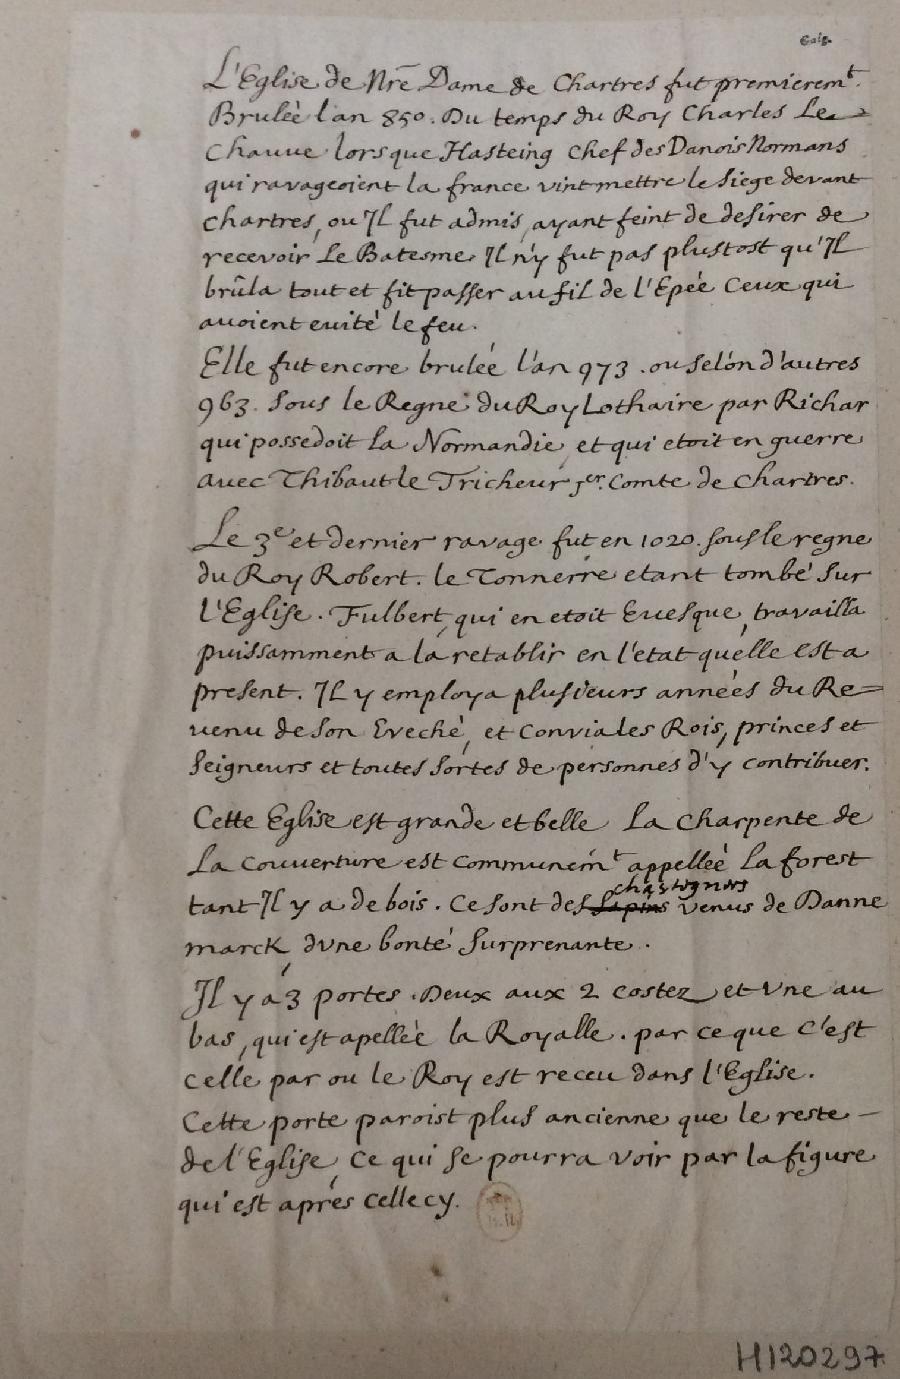 Gaig.
L'Eglise de Nr̃e Dame de Chartres fut premierem.t
Brulèe l'an 850. Du temps du Roy Charles Le
Chauve lorsque Hasteing chef des Danois Normans
qui ravageoient la france vint mettre le siege devant
chartres, ou Jl fut admis, ayant feint de desirer de
recevoir Le Batesme, Jl n'y fut pas plustost qu'Jl
brûla tout et fit passer au fil de l'Epée Ceux qui
avoient evité le feu.
Elle fut encore brulée l'an 973. ou selon d'autres
963. sous le Regne du Roy Lothaire par Richar
qui possedoit La Normandie, et qui etoit en guerre
avec Thibaut le Tricheur 1er. Comte de Chartres.
Le 3e et dernier ravage fut en 1020. sous le regne
du Roy Robert. le Tonnerre etant tombé sur
l'Eglise. Fulbert, qui en etoit Evesque, travailla
puissamment a la retablir en l'etat qu'elle est a
present. Jl y employa plusieurs années du Re=
venu de son Evechè, et convia les Rois, princes et
seigneurs et toutes sortes de personnes d'y contribuer.
Cette Eglise est grande et belle La Charpente de
La couverture est communem.t appelleè la forest
chastegners
tant Jl y a de bois. Ce sont des sapins venus de Danne
marck, d'vne bonté surprenante.
Jl y a 3 portes. Deux aux 2 costez et vne au
bas, qui est apelleè la Royalle. par ce que C'est
celle par ou le Roy est receu dans l'Eglise.
Cette porte paroist plus ancienne que le reste —
de l'Eglise, ce qui se pourra voir par la figure
qui est aprés celle cy.
H120297